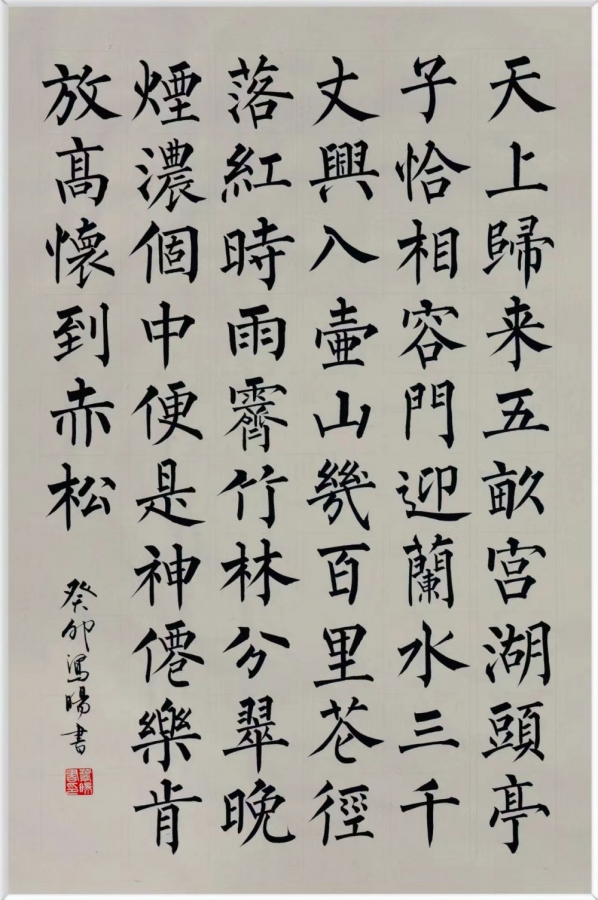 天上歸来五畝宮湖頭亭
子恰相容門迎蘭水三千
丈興入壷山幾百里花徑
落紅時雨霽竹林分翠晚
煙濃個中便是神僊樂肯
放高懷到赤松
癸卯馮暘書